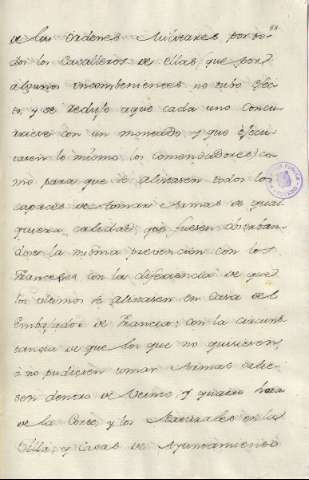 de las ordenes Militares por to-
dos los Cavalleros de ellas, que por
algunos incombenientes no tubo efec-
to, y se redujo aque cada uno concu-
rriese con un montado, y que efecu-
tasen lo mismo los comendadores; co-
mo para que se alistasen todos los
capaces de tomar Armas de qual
quiera calidad, que fuesen,
la misma prevencion con los
Franceses con la diferiencia de que
los ultimos se alistasen en Casa del
Embajador de Francia; con la circuns
tancia de que los que no quisieren,
ò no pudieren tomar Armas salie-
sen dentro de Veinte, y quatro horas
de la Corte, y los Naturales en las
Villas, y Casas de Ayuntamiento